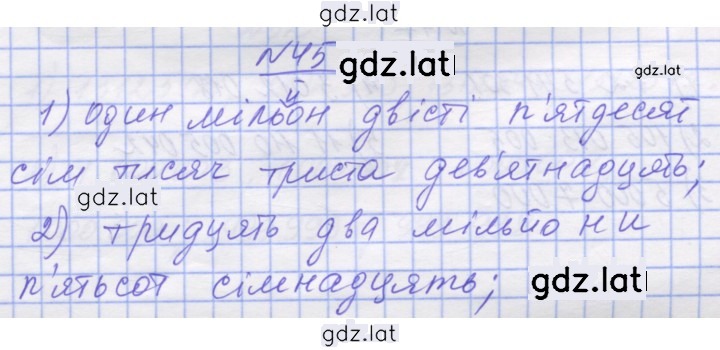 gdz.lat
№45 gdz.lat
1) один мільйон двісті п'ятдесят
сім тисяч триста дев'ятнадцять;
gdz.lat
2) тридцять два мільйони
п'ятьсот сімнадцять; gdz.lat
gdz.lat